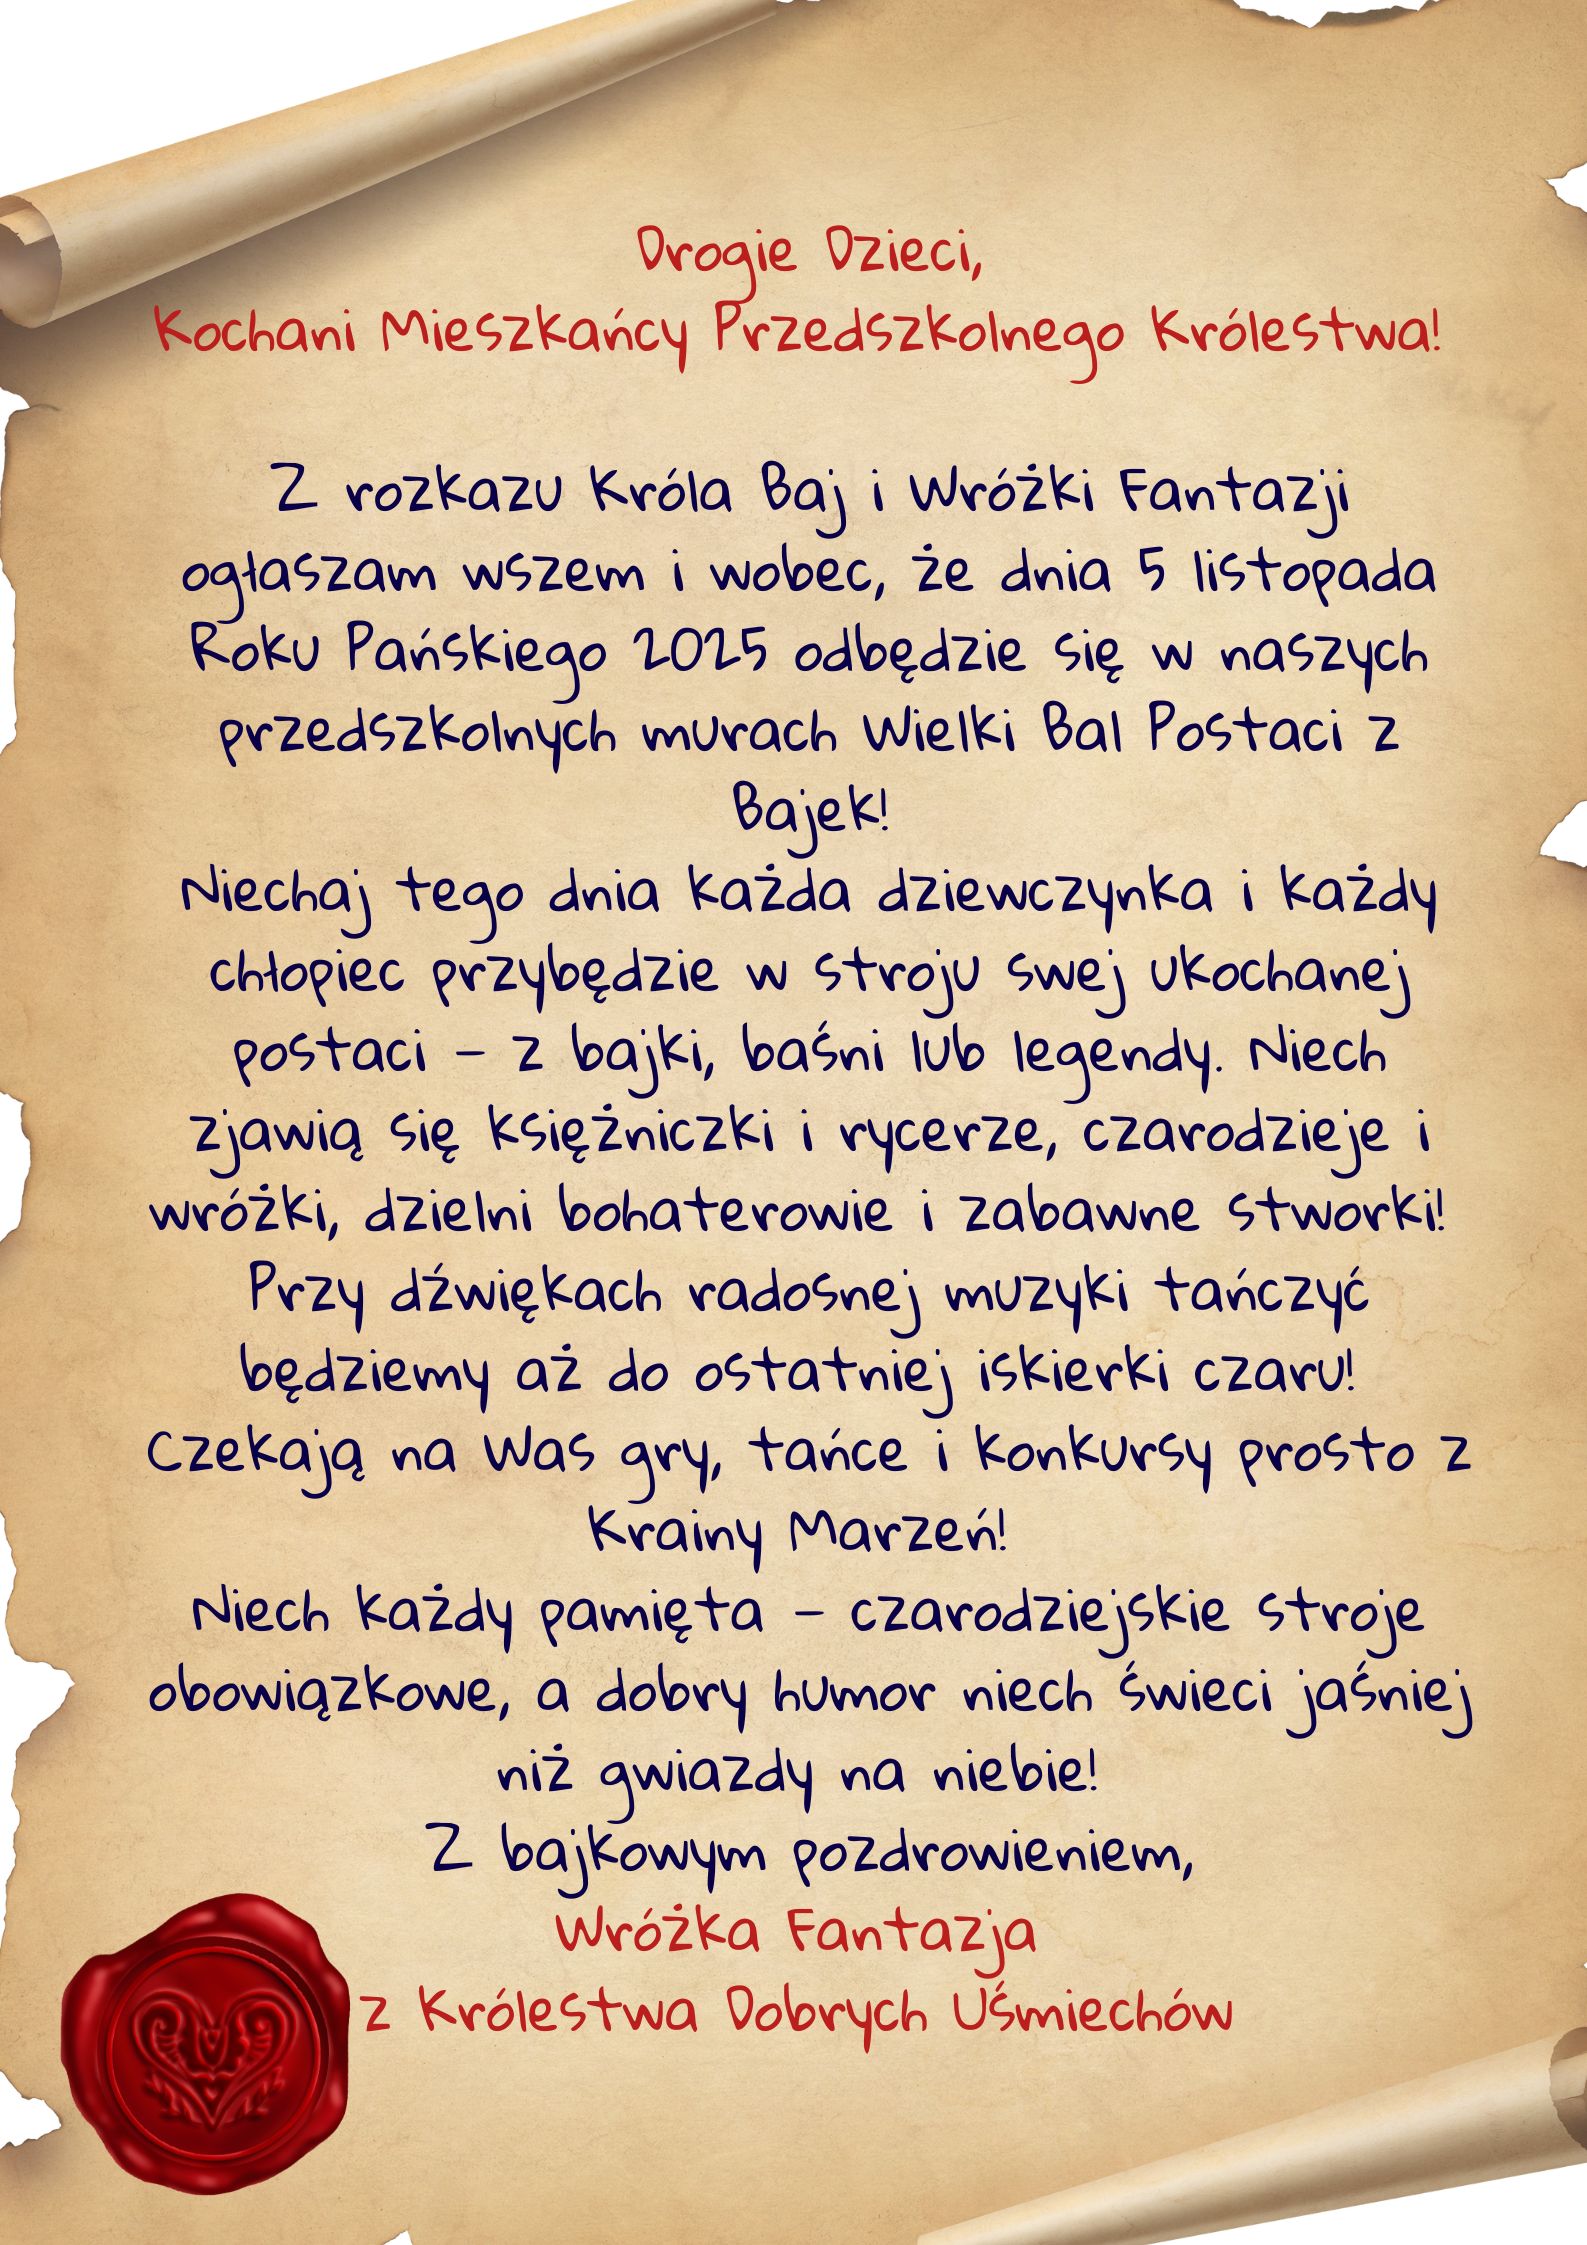 Drogie Dzieci,
Kochani Mieszkańcy Przedszkolnego Królestwa!
Z rozkazu Króla Baj i Wróżki Fantazji
ogłaszam wszem i wobec, że dnia 5 listopada
Roku Pańskiego 2025 odbędzie się w naszych
przedszkolnych murach Wielki Bal Postaci z
Bajek!
Niechaj tego dnia każda dziewczynka i każdy
chłopiec przybędzie w stroju swej ukochanej
postaci – z bajki, baśni lub legendy. Niech
zjawią się księżniczki i rycerze, czarodzieje i
wróżki, dzielni bohaterowie i zabawne stworki!
Przy dźwiękach radosnej muzyki tańczyć
będziemy aż do ostatniej iskierki czaru!
Czekają na Was gry, tańce i konkursy prosto z
Krainy Marzeń!
Niech każdy pamięta – czarodziejskie stroje
obowiązkowe, a dobry humor niech świeci jaśniej
niż gwiazdy na niebie!
Z bajkowym pozdrowieniem,
Wróżka Fantazja
z Królestwa Dobrych Uśmiechów